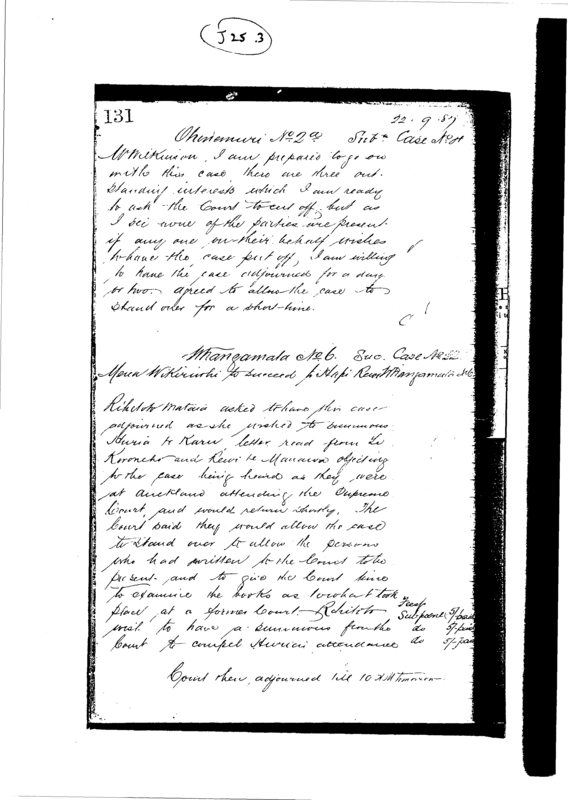 J 25 .3
131
22 . 9 . 87
Ohinemuri No 2a Case No
Mr Wilkinson. I am prepared to go on
with this case there are three out-
standing interests which I am ready
to ask the Court to cut off, but as
I see none of the parties are present.
if any one on their behalf wishes
to have the case put off, I am willing
to have the case adjourned for a day
or two. agreed to allow the case to
stand over for a short time.
Whangamata No 6. Suc. Case No
to succeed to Hapi Rewi Whangamata No 6
asked to have this case
adjourned as she wished to summons
letter read from Te
and Rewi te objecting
to the case being heard as they were
at Auckland attending the Supreme
Court, and would return shortly. The
Court said they would allow the case
to stand over to allow the persons
who had written to the Court to be
present and to give the Court time
to examine the books as to what took
place at a former Court
to have a summons from the
Court to compel attendance
Fees
5/- paid
do 5/- paid
do 5/- paid
Court then adjourned till 10 AM tomorrow